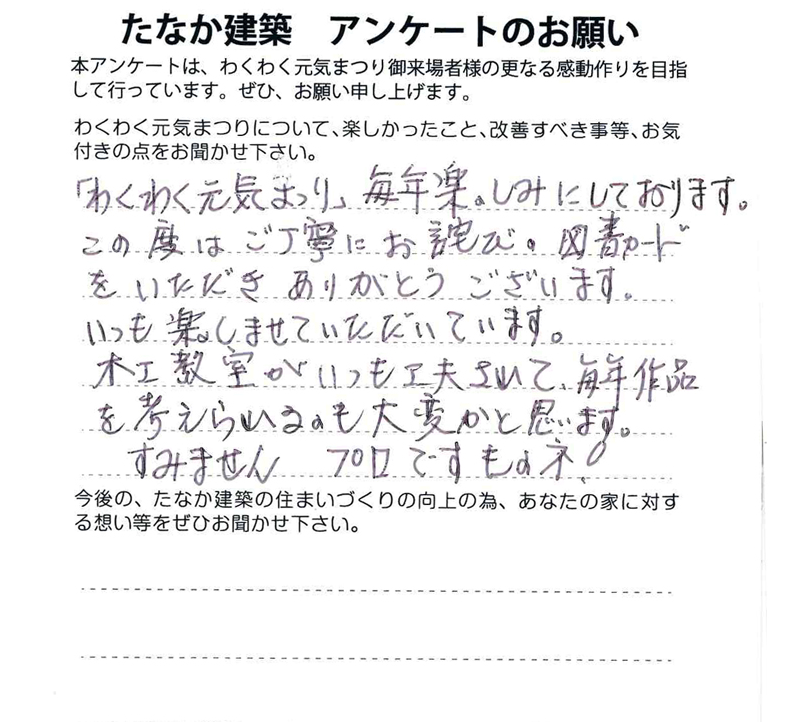 たなか建築　アンケートのお願い
本アンケートは、わくわく元気まつり御来場者様の更なる感動作りを目指
して行っています。ぜひ、お願い申し上げます。
わくわく元気まつりについて、楽しかったこと、改善すべき事等、お気
付きの点をお聞かせ下さい。
「わくわく元気まつり」毎年楽しみにしております。
この度はご丁寧にお詫びの図書カード
をいただきありがとうございます。
いつも楽しませていただいています。
木工教室がいつも工夫されいて、毎年作品
を考えられいるのも大変かと思います。
すみません　プロですものネ!
今後の、たなか建築の住まいづくりの向上の為、あなたの家に対す
る想い等をぜひお聞かせ下さい。